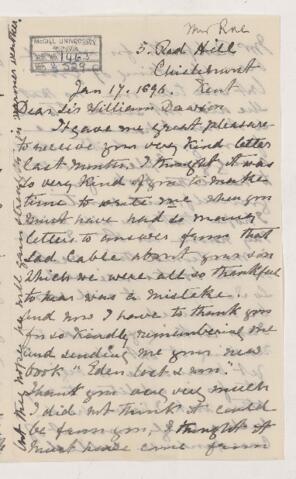 McGILL UNIVERSITY
ARCHIVES
ACC. NO. 1463
REF.
5. Red Hill
Chislehurst
Kent
Jan 17. 1896.
Dear Sir William Dawson
It gave me great pleasure
to receive your very kind letter
last month. I thought it was
so very kind of you to make
time to write me when you
must have had so many
letters to answer from that
sad cable about your son
which we were all so thankful
to hear was a mistake.
and now I have to thank you
for so kindly remembering me
and sending me your new
book "Eden lost & won".
Thank you very very much
I did not think it could
be from you, I thought it
must have come from